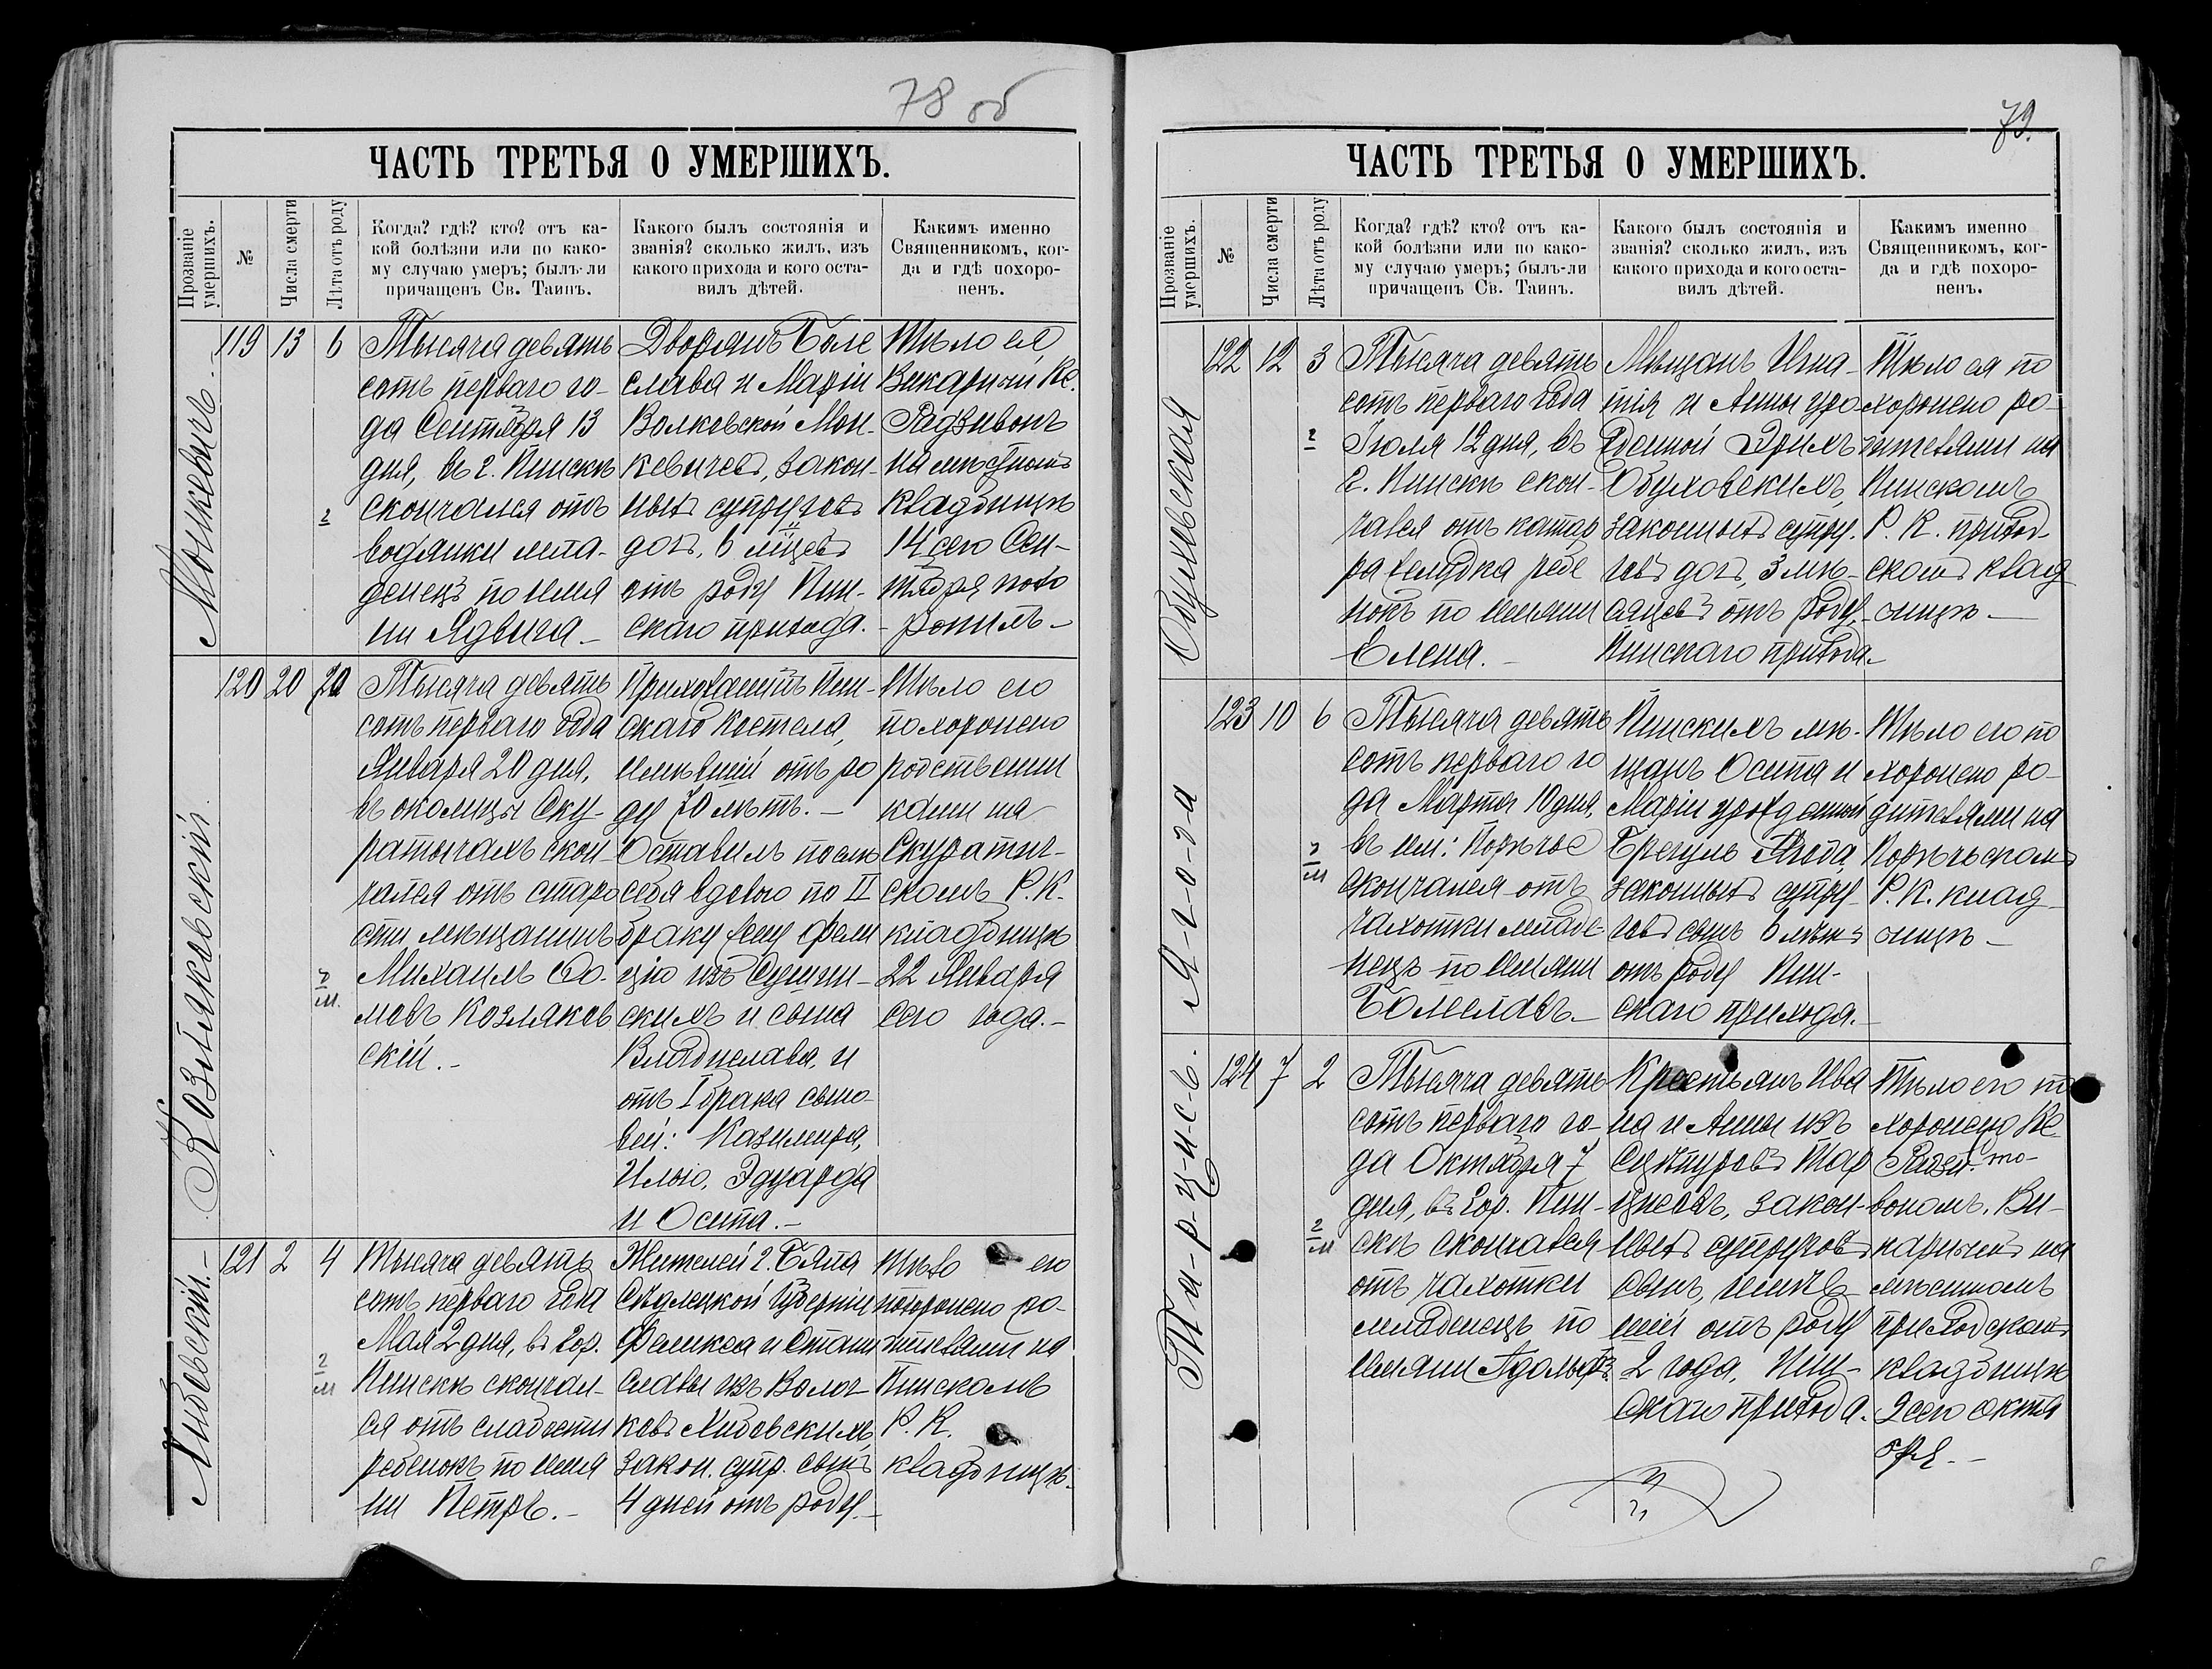 78 об
ЧАСТЬ ТРЕТЬЯ О УМЕРШИХЪ.
Прозваніе умершихъ.
№
Числа смерти
Лѣта отъ роду
Когда? гдѣ? кто? отъ ка-
кой болѣзни или по како-
му случаю умеръ; былъ-ли
причащенъ Св. Таинъ.
Какого былъ состоянія и
званія? сколько жилъ, изъ
какого прихода и кого оста-
вилъ дѣтей.
Какимъ именно
Священникомъ, ког-
да и гдѣ похоро-
ненъ.
Монкевичъ
119 13 6
Тысяча девять
сотъ перваго го-
да Сентября 13
дня, въ г. Пинскѣ
скончался отъ
водянки мла-
денецъ по име
ни Ядвига
Дворянъ Боле
слава и Маріи
Волковской Мон-
кевичей, закон-
ныхъ супруговъ
дочь, 6 мѣсцевъ
отъ роду Пин-
скаго прихода.
Тѣло ея
Викарный Кс.
Радзивонъ
на мѣстномъ
кладбищѣ
14 сего Сен-
тября похо
ронилъ
Козляковскій
120 20 70
Тысяча девять
сотъ перваго года
Января 20 дня,
въ околицы Ску-
ратычахъ скон-
чался отъ старо
сти мѣщанинъ
Михаилъ Ѳо-
мовъ Козляков
скій.
ч
м.
Прихожанинъ Пин-
скаго костела,
имѣвшій отъ ро
ду 70 лѣтъ.
Оставилъ послѣ
себя вдовою по II
браку жену Фели
цію изъ Сушин-
скихъ и сына
Владислава, и
отъ I брака сыно
вей: Казимира,
Илью, Эдуарда
и Осипа.
Тѣло его
похоронено
родственни
ками на
Скуратич-
скомъ Р. К.
кладбищѣ
22 Января
сего года.
Хибовскій.
121 2 4
Тысяча девять
сотъ перваго года
Мая 2 дня, въ гор.
Пинскѣ скончал-
ся отъ слабости
ребенокъ по име
ни Петръ.
Жителей г. Бяла
Сѣдлецкой Губерніи
Феликса и Стани
славы изъ Волч-
ковъ Хибовскихъ,
закон. супр. сынъ
4 дней отъ роду.
Тѣло его
похоронено ро-
дителями на
Пинскомъ
Р. К.
кладбищѣ.
79.
ЧАСТЬ ТРЕТЬЯ О УМЕРШИХЪ.
Прозваніе умершихъ.
№
Числа смерти
Лѣта отъ роду
Когда? гдѣ? кто? отъ ка-
кой болѣзни или по како-
му случаю умеръ; былъ-ли
причащенъ Св. Таинъ.
Какого былъ состоянія и
званія? сколько жилъ, изъ
какого прихода и кого оста-
вилъ дѣтей.
Какимъ именно
Священникомъ, ког-
да и гдѣ похоро-
ненъ.
Обуховская
122 12 3
Тысяча девять
сотъ перваго года
Іюля 12 дня, въ
г. Пинскѣ скон-
чался отъ катар
ра желудка ребе
нокъ по имени
Елена.
Мѣщанъ Игна-
тія и Анны уро-
жденной
Обуховскихъ,
законныхъ супру-
говъ дочь, 3 мѣ-
сяцевъ отъ роду,
Пинскаго прихода.
Тѣло ея по
хоронено ро-
дителями на
Пинскомъ
Р. К. приход-
скомъ клад
бищѣ
Я-г-о-д-а
123 10 6
Тысяча девять
сотъ перваго го
да Марта 10 дня,
въ им: Порѣчье
скончался отъ
чахотки младе-
нецъ по имени
Болеславъ
Пинскихъ мѣ-
щанъ Осипа и
Маріи урожденной
Ягода,
законныхъ супру-
говъ сынъ 6 лѣтъ
отъ роду Пин-
скаго прихода.
Тѣло его по
хоронено ро-
дителями на
Порѣчьскомъ
Р. К. клад
бищѣ
Т-а-р-ц-и-с-ъ.
124 7 2
Тысяча девять
сотъ перваго го-
да Октября 7
дня, въ гор. Пин-
скѣ скончался
отъ чахотки
младенецъ по
имени Адольфъ.
Крестьянъ Ива
на и Анны изъ
Тар
цисовъ, закон-
ныхъ супруговъ
сынъ, имѣв
шій отъ роду
2 года, Пин-
скаго прихода.
Тѣло его по
хоронено Кс.
Радзи-
вономъ, Ви-
карнымъ на
мѣстномъ
приходскомъ
кладбищѣ
9 сего октя
бря.